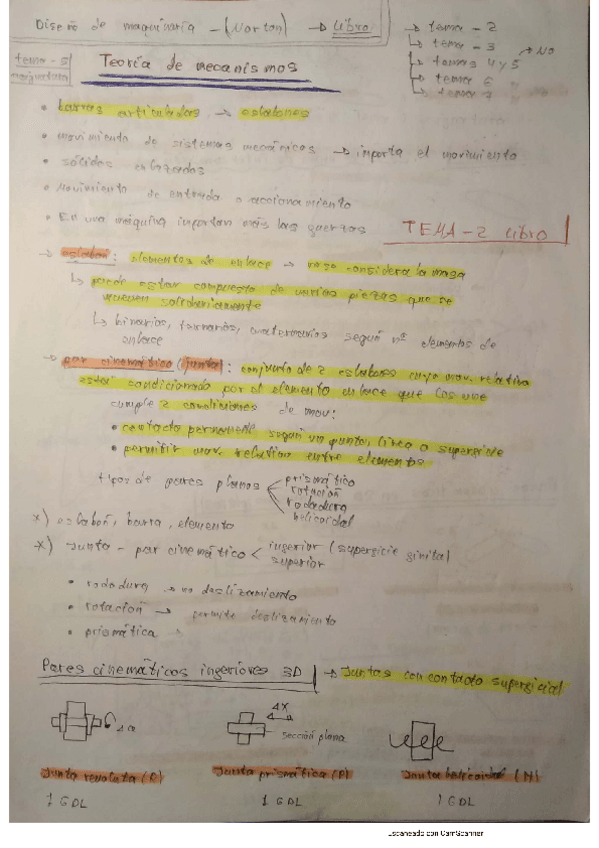 Diseño de maquinaria - (Norton) → Libro
→ tema - 2
→ tema - 3
→ temas 4 y 5 → NO
→ tema 6 "
→ tema 7 "
tema - 5/ asignatura
Teoría de mecanismos
• barras articuladas → eslabones
• movimiento de sistemas mecánicos → importa el movimiento
• sólidos enlazados
• Movimiento de entrada o accionamiento
• En una máquina importan más las fuerzas
TEMA - 2 Libro
→ eslabón: elementos de enlace → no se considera la masa
↳ puede estar compuesto de varias piezas que se
mueven solidariamente
↳ binarios, ternarios, cuaternarios según nº elementos de
enlace
→ par cinemático (junta): conjunto de 2 eslabones cuyo mov. relativo
está condicionado por el elemento enlace que los une
cumple 2 condiciones de mov:
• contacto permanente según un punto, línea o superficie
• permitir mov. relativo entre elementos
tipos de pares planos < prismático
rotación
rodadura
helicoidal
*) eslabón, barra, elemento
*) Junta - par cinemático < inferior (superficie finita)
superior
• rodadura → no deslizamiento
• rotación → permite deslizamiento
• prismática "
Pares cinemáticos inferiores 3D → Juntas con contacto superficial
Δα
Δx
sección plana
Junta revoluta (R)
Junta prismática (P)
Junta helicoidal (H)
1 GDL
1 GDL
1 GDL
Escaneado con CamScanner